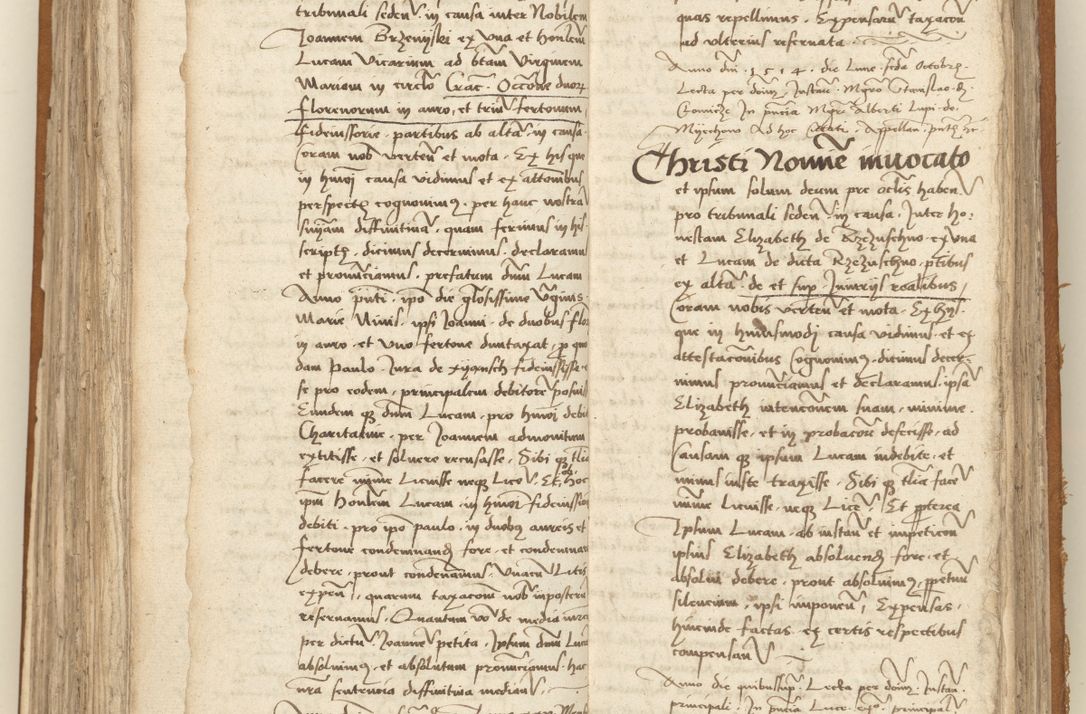 tribunali seden in causa inter Nobilem
Joannem Brzeniski ex una et honlem
Lucam Vicarium ad btam Virginem
Mariam in circlo Crac. Occone duor
florenorum in auro, et triu fertonum
fideiussorie. partibus ab alta in causa
Coram nob verten et mota. Ex his que
in hmoi causa vidimus et ex attonibus
perspecte cognovimus. per hanc nostra
snıam diffinitiva, quam ferimus in his
scriptis, dicimus decernimus. declaramus
et pronunciamus. prefatum dnm Lucam
Anno pnti. ipo die glosissime Vginis
Marie Nivis. ipsi Joanni. de duobus flo
in auro. et uno fertone duntaxat, p quo
dam Paulo fideiussisse
se pro eodem, principalem debitore posuis
Eundem q dnm Lucam, pro hmoi debi
Charitative, per Joannem admonitum
extitisse, et solvere recusasse. Sibi q tlia
facere mime licuisse neq lice. Et ob hoc
ipm honlem Lucam, in hmoi fideiussio
debiti. pro ipo Paulo, in duobus aureis et
fertone condemnand fore, et condemnari
debere, prout condenamus. Unacu litis
expen, quarum taxacon nob inposteru
reservamus. Quantum vo de media marca
per dictu Joanne petita, Ipsum dnm Luca
absolvimus. et absolutum pronunciamus. hac
nra sentencia diffinitiva median
quas repellimus. Expensaru taxacon
ad ulterius reservata
Anno dni 1514. die Lune secda Octobr.
Lecta per dom Instan Mgro Stanislao de
In pncia Mgri Alberti Lupi de
Myechow Ad hoc Citati. Appellan
Christi Nomine invocato
et ipsum solum deum pre oclis haben
pro tribunali seden in causa. Inter ho:
nestam Elizabeth de Rzezuschno. ex una
et Lucam de dicta Rzezuschno. ptibus
ex alta. de et sup. Iniurijs realibus,
Coram nobis verten et mota. Ex hijs
que in huiusmodj causa vidimus. et ex
attestaconibus Cognovimus. dicimus decer-
nimus pronunciamus et declaramus. ipsa
Elizabeth intenconem suam, minime
probavisse, et in probacon defecisse, ad
Causam q ipsum Lucam indebite. et
minus iuste traxisse. Sibi q tlia face
mime licuisse. neq Lice. Et pterea
Ipsum Lucam. ab instan et impeticon
ipsius Elizabeth absolvend fore. et
absolvi debere. prout absolvimus, ppetuu
silencium, ipsi imponen, Expensas.
hincinde factas. ex certis respectibus
compensan
Anno die quibus sup. Lecta per dom Instan.
principali. In pncia Luce. principali